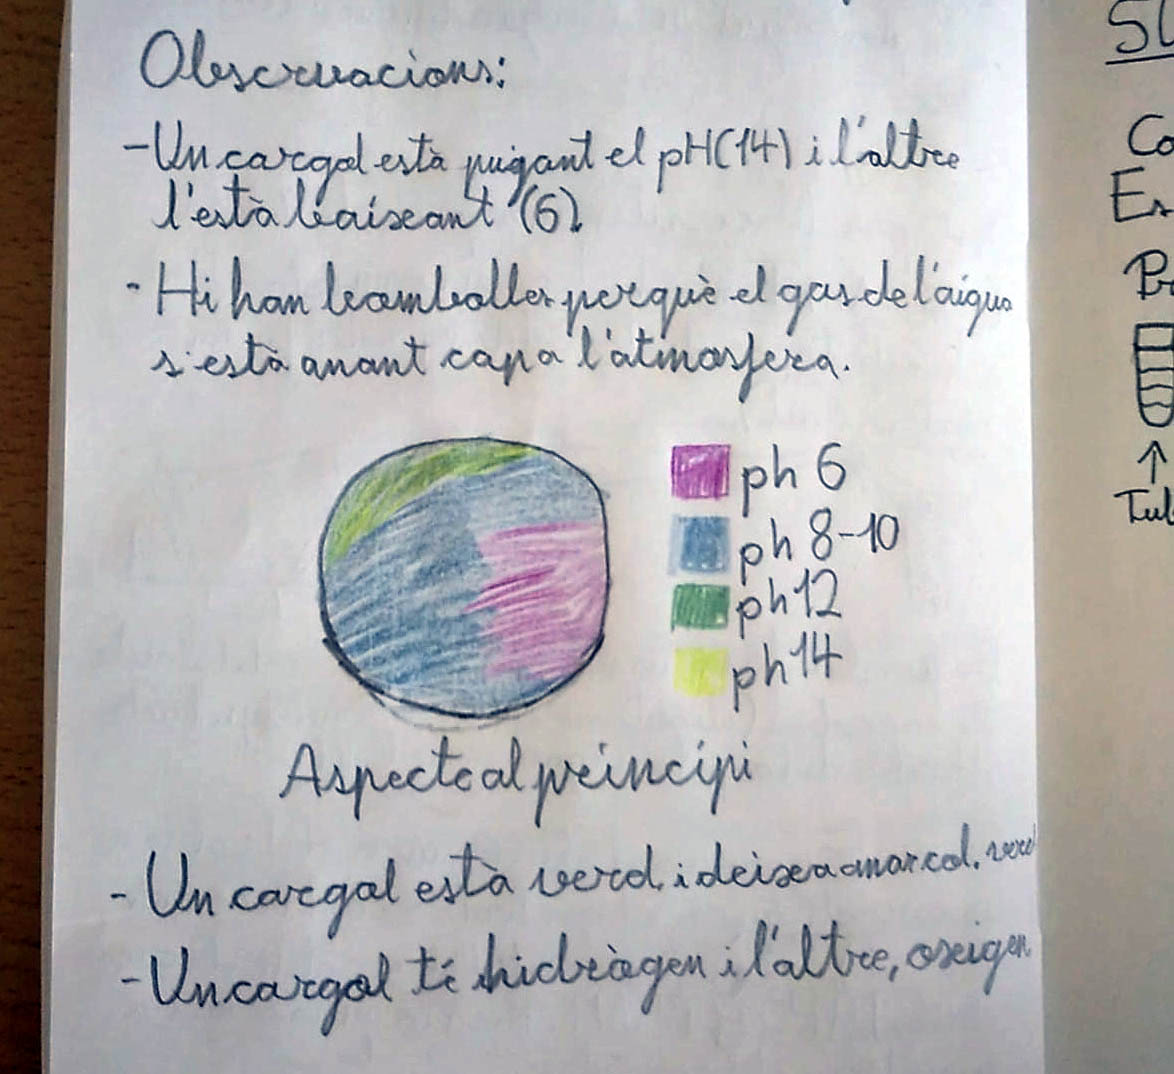 Observacions:
-Un cargol està pujant el pH(14) i l'altre
l'està baixant (6).
- Hi han bambolles perquè el gas de l'aigua
s'està anant cap a l'atmosfera.
ph 6
ph 8-10
ph 12
ph 14
Aspecte al príncipi
- Un cargol està verd i deixea anar col. verd
- Un cargol té hidrògen i l'altre, oxigen
Co
Es
Tub